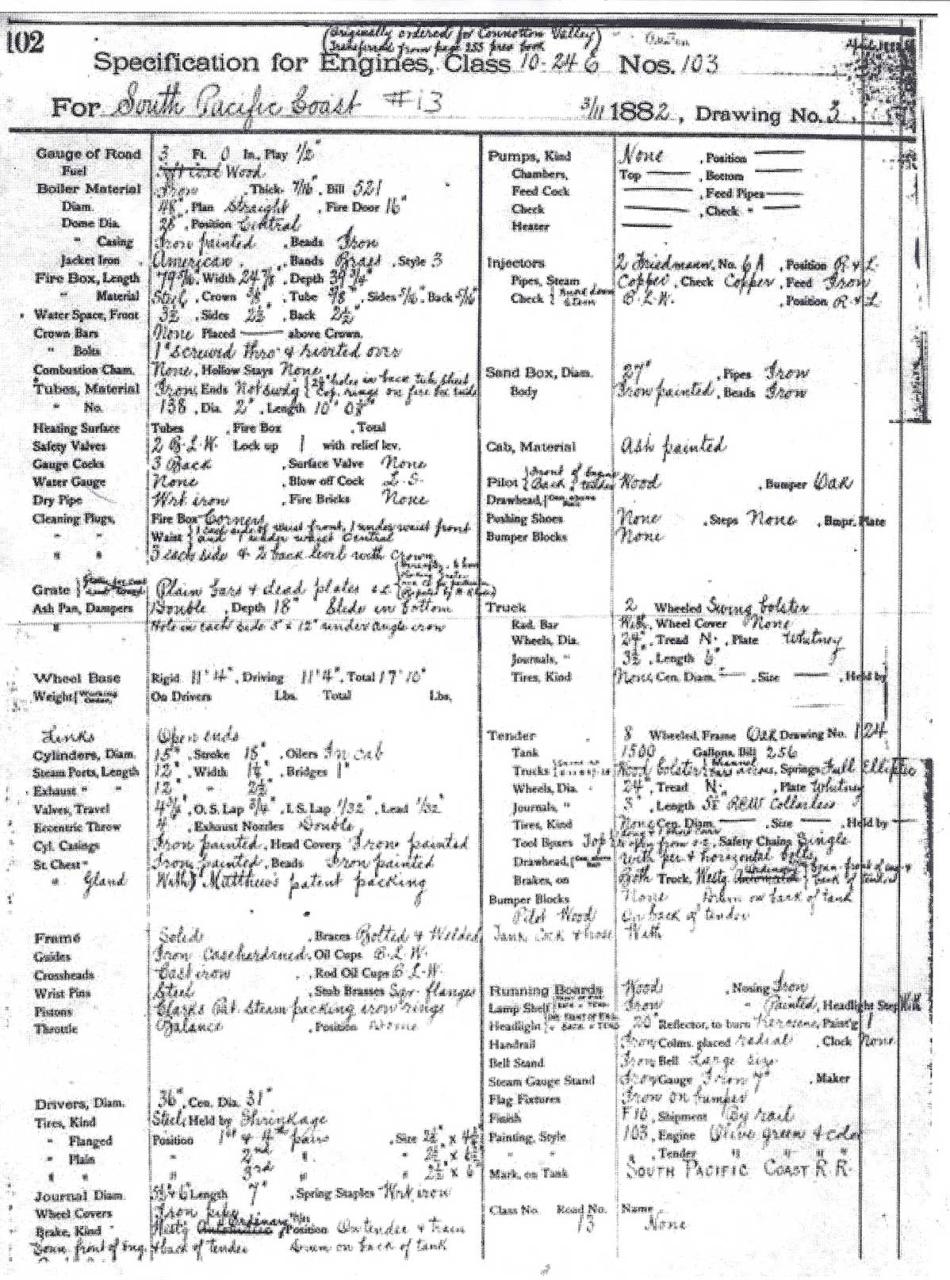 102
(Originally ordered for Connotton Valley)
(Transferred from page 255 prev book)
Specification for Engines, Class 10-24 6 Nos. 103
For South Pacific Coast #13 3/11 1882, Drawing No. 3.
Gauge of Road 3 Ft. 0 In., Play 1/2"
Fuel Wood
Boiler Material Iron , Thick. 7/16", Bill 521
Diam. 48", Plan Straight , Fire Door 16"
Dome Dia. 26", Position Central
" Casing Iron painted , Beads Iron
Jacket Iron American , Bands Brass , Style 3
Fire Box, Length 79 5/16, Width 24 7/8", Depth 39 3/4"
" Material Steel, Crown 3/8", Tube 3/8", Sides 5/16", Back 5/16"
Water Space, Front 3½ , Sides 2½ , Back 2½"
Crown Bars None Placed —— above Crown.
" Bolts 1" screwed thro' & riveted over
Combustion Cham. None, Hollow Stays None
Tubes, Material Iron, Ends Not swdg holes in back tube sheet
Cop. rings on fire box ends
" No. 138, Dia. 2", Length 10' 0⅞"
Heating Surface Tubes , Fire Box , Total
Safety Valves 2 B.L.W. Lock up 1 with relief lev.
Gauge Cocks 3 Back , Surface Valve None
Water Gauge None , Blow off Cock L.S.
Dry Pipe Wrt iron , Fire Bricks None
Cleaning Plugs, Fire Box Corners
" " Waist 1 each side of waist front, 1 under waist front
and 1 under waist central
" " 3 each side & 2 back level with crown
Grate Plain bars & dead plates
Ash Pan, Dampers Double , Depth 18" Slide in bottom
" Hole in each side 3" x 12" under angle iron
Wheel Base Rigid 11' 4", Driving 11' 4", Total 17' 10"
Weight On Drivers Lbs. Total Lbs.
Links Open ends
Cylinders, Diam. 15", Stroke 18", Oilers In cab
Steam Ports, Length 12", Width 1¼, Bridges 1"
Exhaust " 12 " 2½"
Valves, Travel O.S. Lap 3/4", I.S. Lap 1/32", Lead 1/32"
Eccentric Throw 4", Exhaust Nozzles Double
Cyl. Casings Iron painted, Head Covers Iron painted
St. Chest " Iron painted, Beads Iron painted
" Gland With Matthews patent packing
Frame Solid , Braces Bolted & Welded
Guides Iron Casehardened, Oil Cups B.L.W.
Crossheads Cast iron , Rod Oil Cups B.L.W.
Wrist Pins Steel , Stub Brasses Sqr. flanges
Pistons Clarks Pat. Steam packing iron rings
Throttle Balance , Position Dome
Drivers, Diam. 36", Cen. Dia. 31"
Tires, Kind Steel, Held by Shrinkage
" Flanged Position 1st & 4th pairs , Size
" Plain " 2nd "
" " " 3rd " 2½" x 6"
Journal Diam. Length 7" , Spring Staples Wrt iron
Wheel Covers Iron
Brake, Kind Westg Ordinary Position On tender & train
front of Eng. & back of tender Drum on back of tank
Pumps, Kind None , Position ——
Chambers, Top —— , Bottom ——
Feed Cock —— , Feed Pipes ——
Check —— , Check " ——
Heater ——
Injectors 2 Friedmann, No. 6A , Position R & L
Pipes, Steam Copper, Check Copper, Feed Iron
Check B.L.W. , Position R & L
Sand Box, Diam. 27" , Pipes Iron
Body Iron painted, Beads Iron
Cab, Material Ash painted
Pilot Front of Engine Wood , Bumper Oak
Drawhead,
Pushing Shoes None , Steps None , Bmpr. Plate
Bumper Blocks None
Truck 2 Wheeled Swing bolster
Rad. Bar With, Wheel Cover None
Wheels, Dia. 24", Tread N. , Plate Whitney
Journals, " 3½, Length 6"
Tires, Kind None Cen. Diam. —— , Size —— , Held by
Tender 8 Wheeled, Frame Oak Drawing No. 124
Tank 1500 Gallons, Bill 256
Trucks Wood bolster , Springs Full Elliptic
Wheels, Dia. 24", Tread N. , Plate Whitney
Journals, " 3", Length Collarless
Tires, Kind None Cen. Diam. —— , Size —— , Held by ——
Tool Boxes Top , Safety Chains Single
Drawhead, With pin & horizontal bolts,
Brakes, on Both Truck, Westg Ordinary
Bumper Blocks None Drum on back of tank
Pilot Wood On back of tender
Tank Cock & hose With
Running Boards Wood , Nosing Iron
Lamp Shelf Iron " Painted, Headlight Step With
Headlight 20" Reflector, to burn Kerosene, Paint'g 1
Handrail Iron Colms. placed radial , Clock None
Bell Stand Iron Bell Large size
Steam Gauge Stand Iron Gauge Iron 7" , Maker
Flag Fixtures Iron on bumper
Finish F10, Shipment By rail
Painting, Style 103, Engine Olive green & color
" " , Tender " " " "
Mark, on Tank SOUTH PACIFIC COAST R.R.
Class No. Road No. Name
13 None